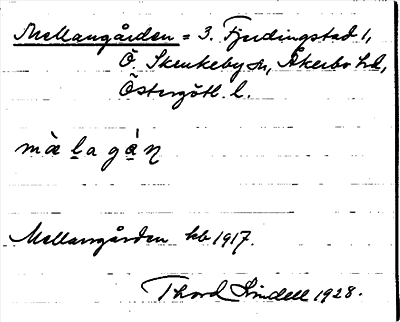 Mellangården = 3. Fjerdingstad 1,
Ö. Skenkeby sn, Åkerbo hd,
Östergötl. l.
màḷagá̱n
Mellangården kb 1917.
Thord Lindell 1928.